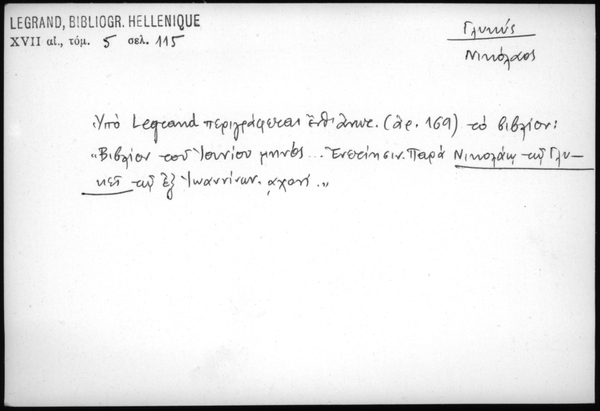 LEGRAND, BIBLIOGR. HELLENIQUE
XVII αἰ., τόμ. 5 σελ. 115
Γλυκύς
Νικόλαος
Ὑπό Legrand περιγράφεται ἐνθ' (ἀρ. 169) τὸ βιβλίον:
"Βιβλίον τοῦ Ἰουνίου μηνός... Ἐνετίησιν. Παρά Νικολάῳ τῷ Γλυ-
κεῖ τῷ ἐξ Ἰωαννίνων. ͵αχοή."